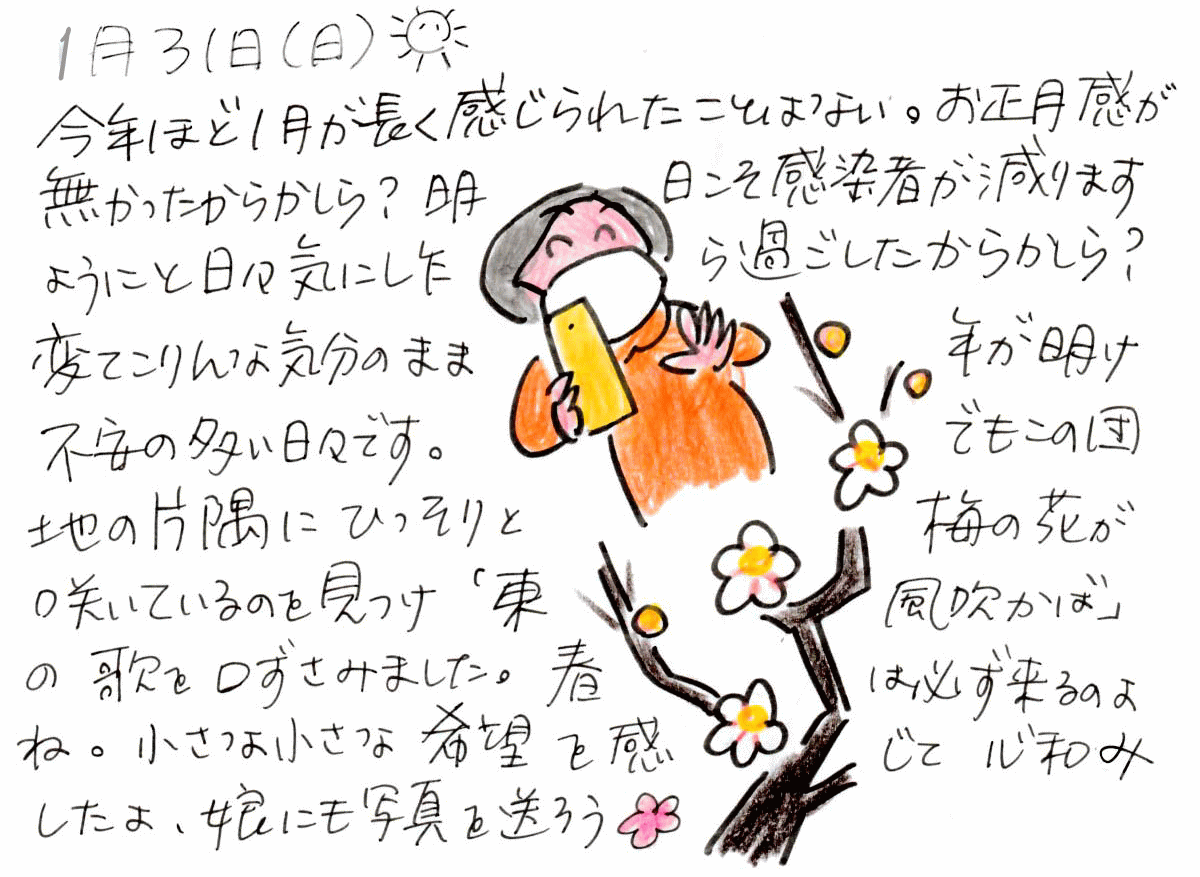 1月31日(日)
今年ほど1月が長く感じられたことはない。お正月感が
無かったからかしら?明日こそ感染者が減ります
ようにと日々気にしたら過ごしたからかしら?
変てこりんな気分のまま年が明け
不安の多い日々です。でもこの団
地の片隅にひっそりと梅の花が
咲いているのを見つけ「東風吹かば」
の歌を口ずさみました。春は必ず来るのよ
ね。小さな小さな希望を感じて心和み
したよ、娘にも写真を送ろう